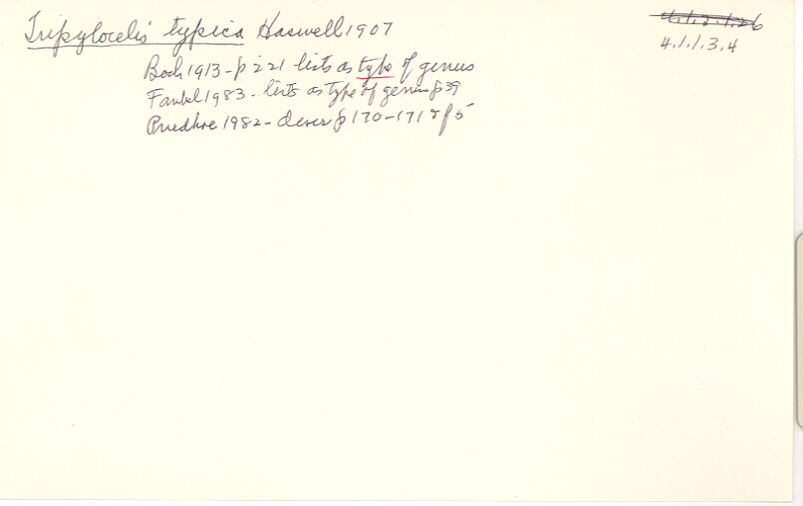 Tripylocelis typica Haswell 1907
4.1.2.1.26
4.1.1.3.4
Bock 1913 - p 221 lists as type of genus
Faubel 1983 - lists as type of genus p 39
Prudhoe 1982 - descr p 170-171 & f 5